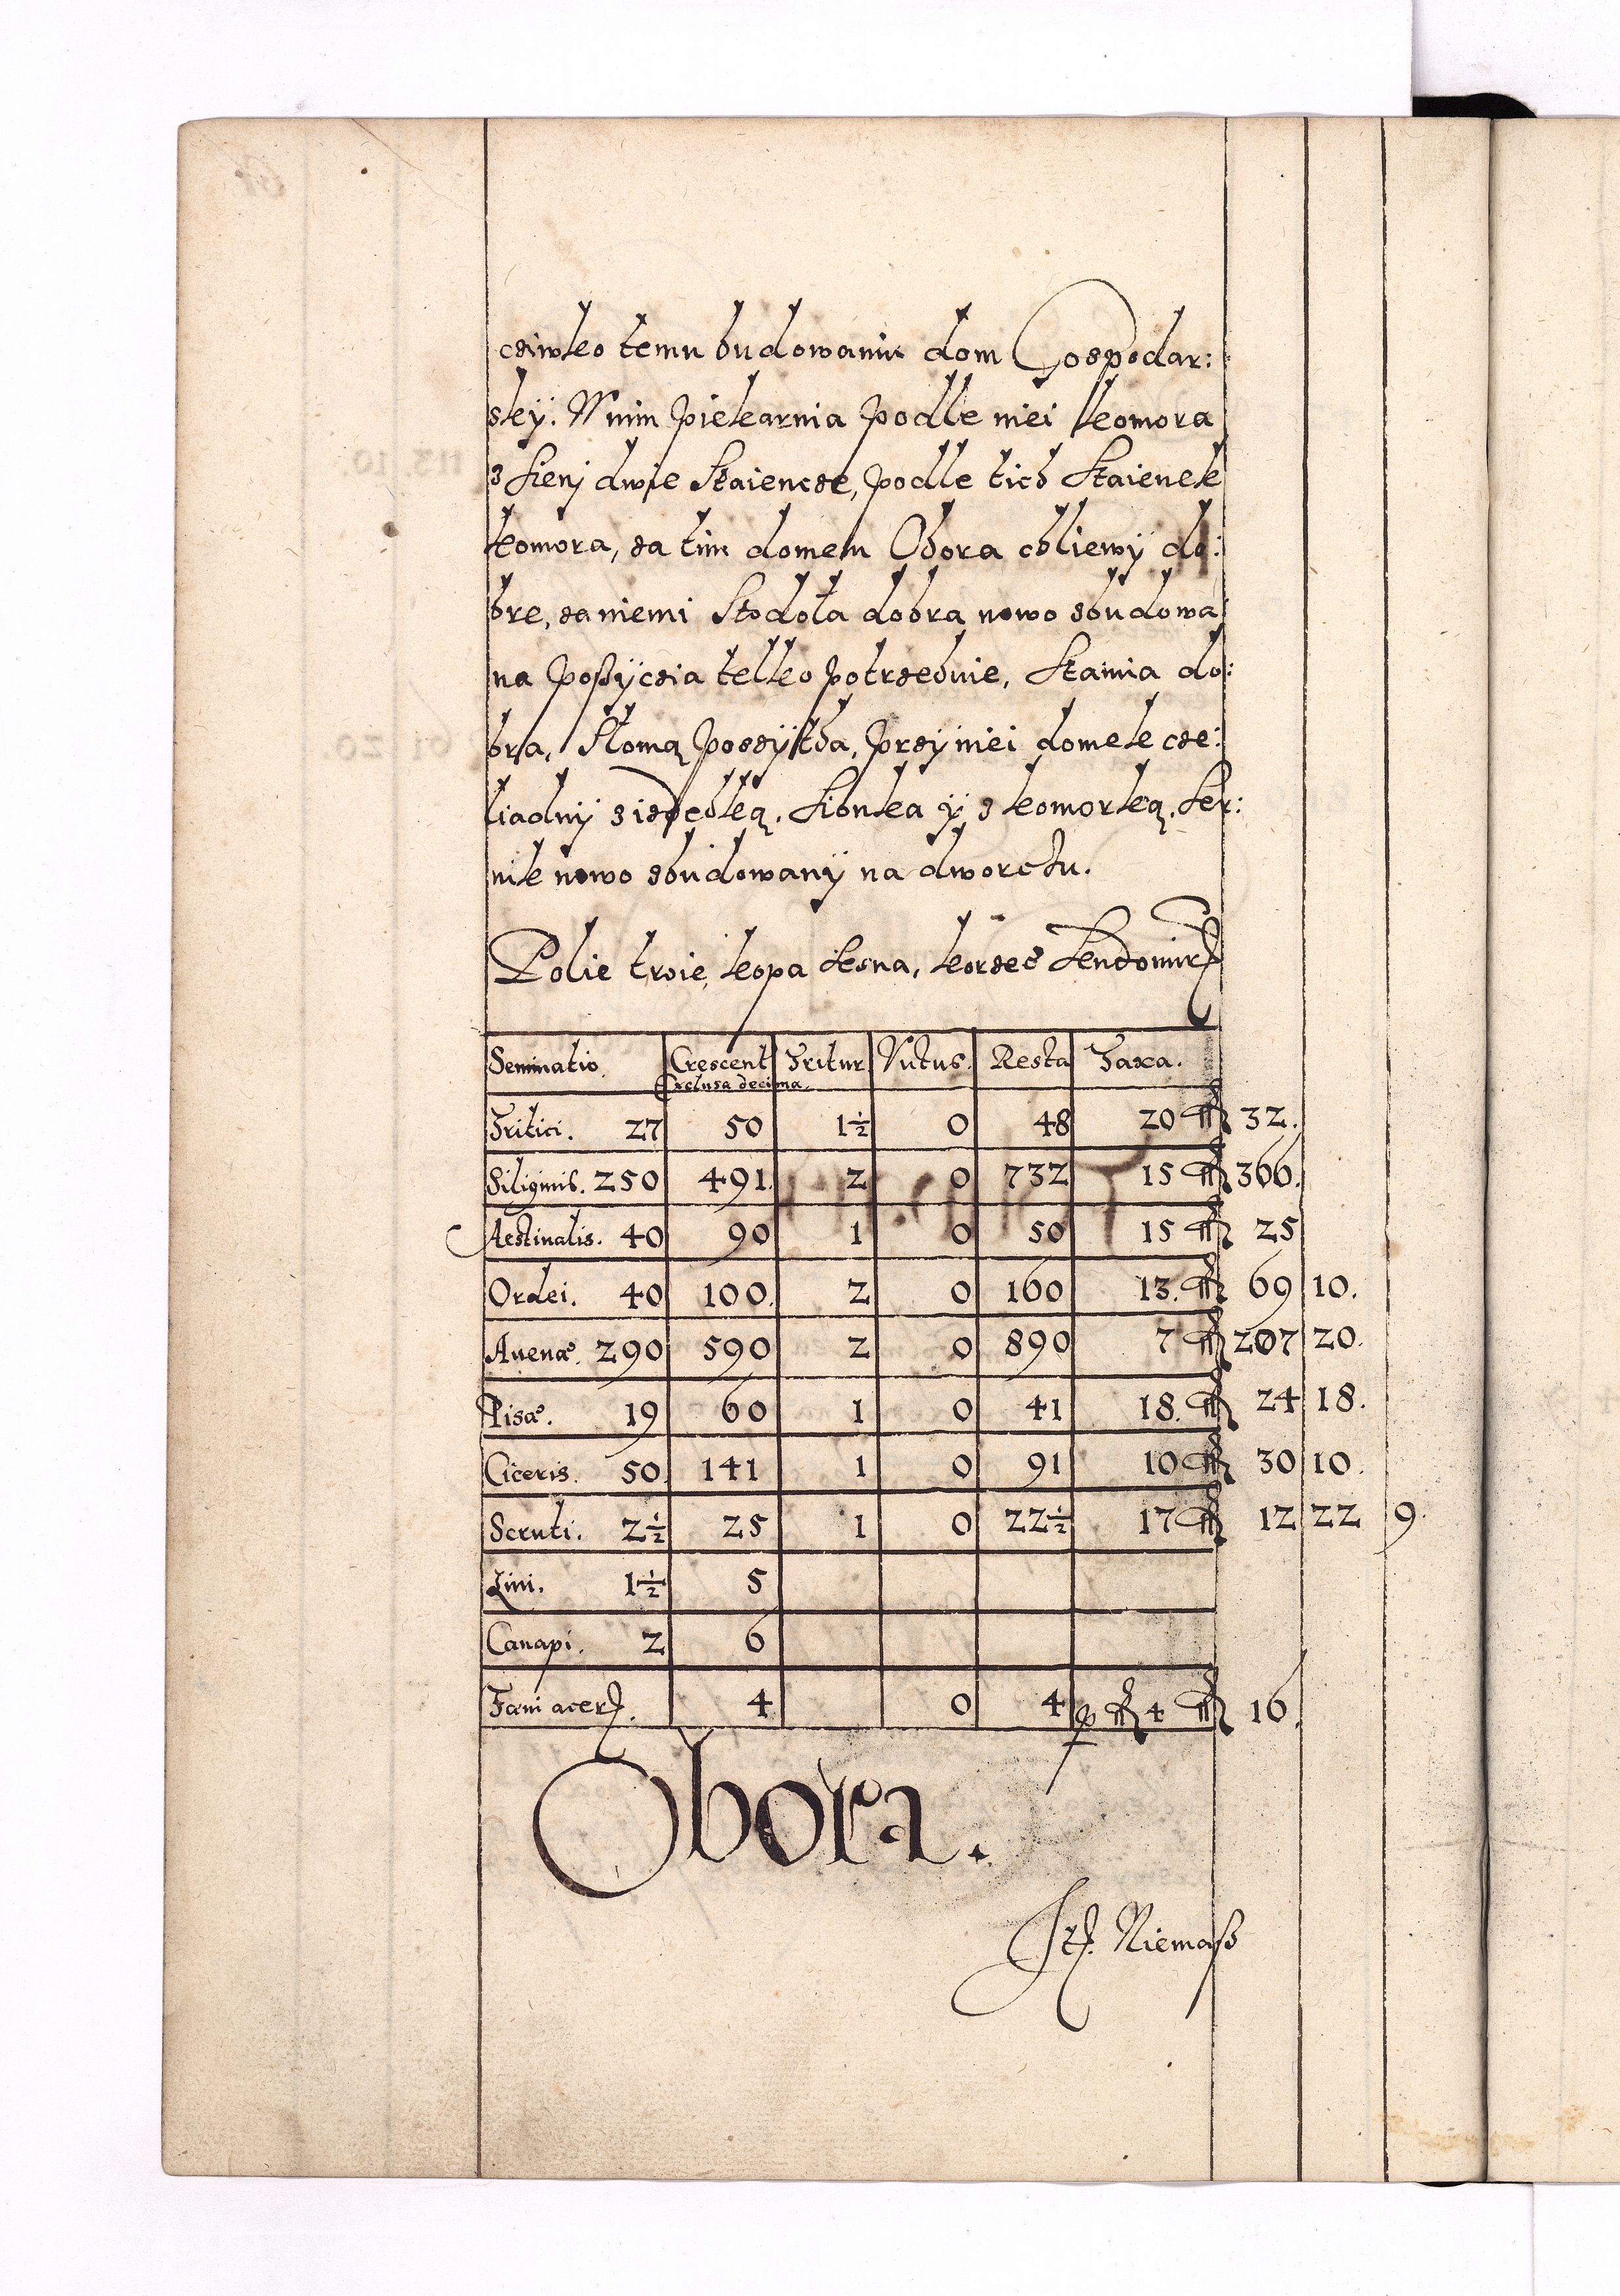 cziwko temu budowaniu dom Gospodar:
skÿ. W nim piekarnia podle niei komora
z sieni dwie staiencze, podle tich staienek
komora, za tim domem Obora chliewÿ do:
bre, za niemi stodoła dobra nowo zbudowa
na poszÿcia telko potrzebnie, stainia do:
bra, słomą poszÿtha, przÿ niei domek cze:
liadnÿ z izdebką, sionka ÿ z komorką. Ser:
nik nowo zbudowanÿ na dworcku.
Polie troie, kopa lesna, korzec Sendomir
Seminatio. Crescent Tritur Nutus. Resta Taxa.
Exclusa decima.
Tritici. 27 50 1½ 0 48 20 fl 32.
Siliginis. 250 491. 2 0 732 15 fl 366.
Aestiualis. 40 90 1 0 50 15 fl 25
Ordei. 40 100. 2 0 160 13. fl 69 10.
Auenæ. 290 590 2 0 890 7 fl 207 20.
Pisæ. 19 60 1 0 41 18. fl 24 18.
Ciceris. 50. 141 1 0 91 10 fl 30 10.
Scruti. 2½ 25 1 0 22½ 17 fl 12 22 9.
Lini. 1½ 5
Canapi. 2 6
Fœni acer. 4 0 4 p fl 4 fl 16.
Obora.
Niemasz